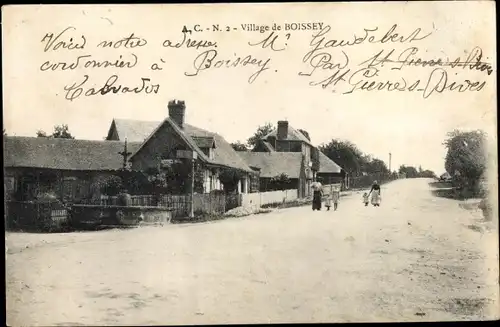 A. C. - N. 2 - Village de BOISSEY
Voici notre adresse.
Mr Gaudebert
cordonnier à Boissey
Par St Pierre s Dives
St Pierres, Dives
Calvados